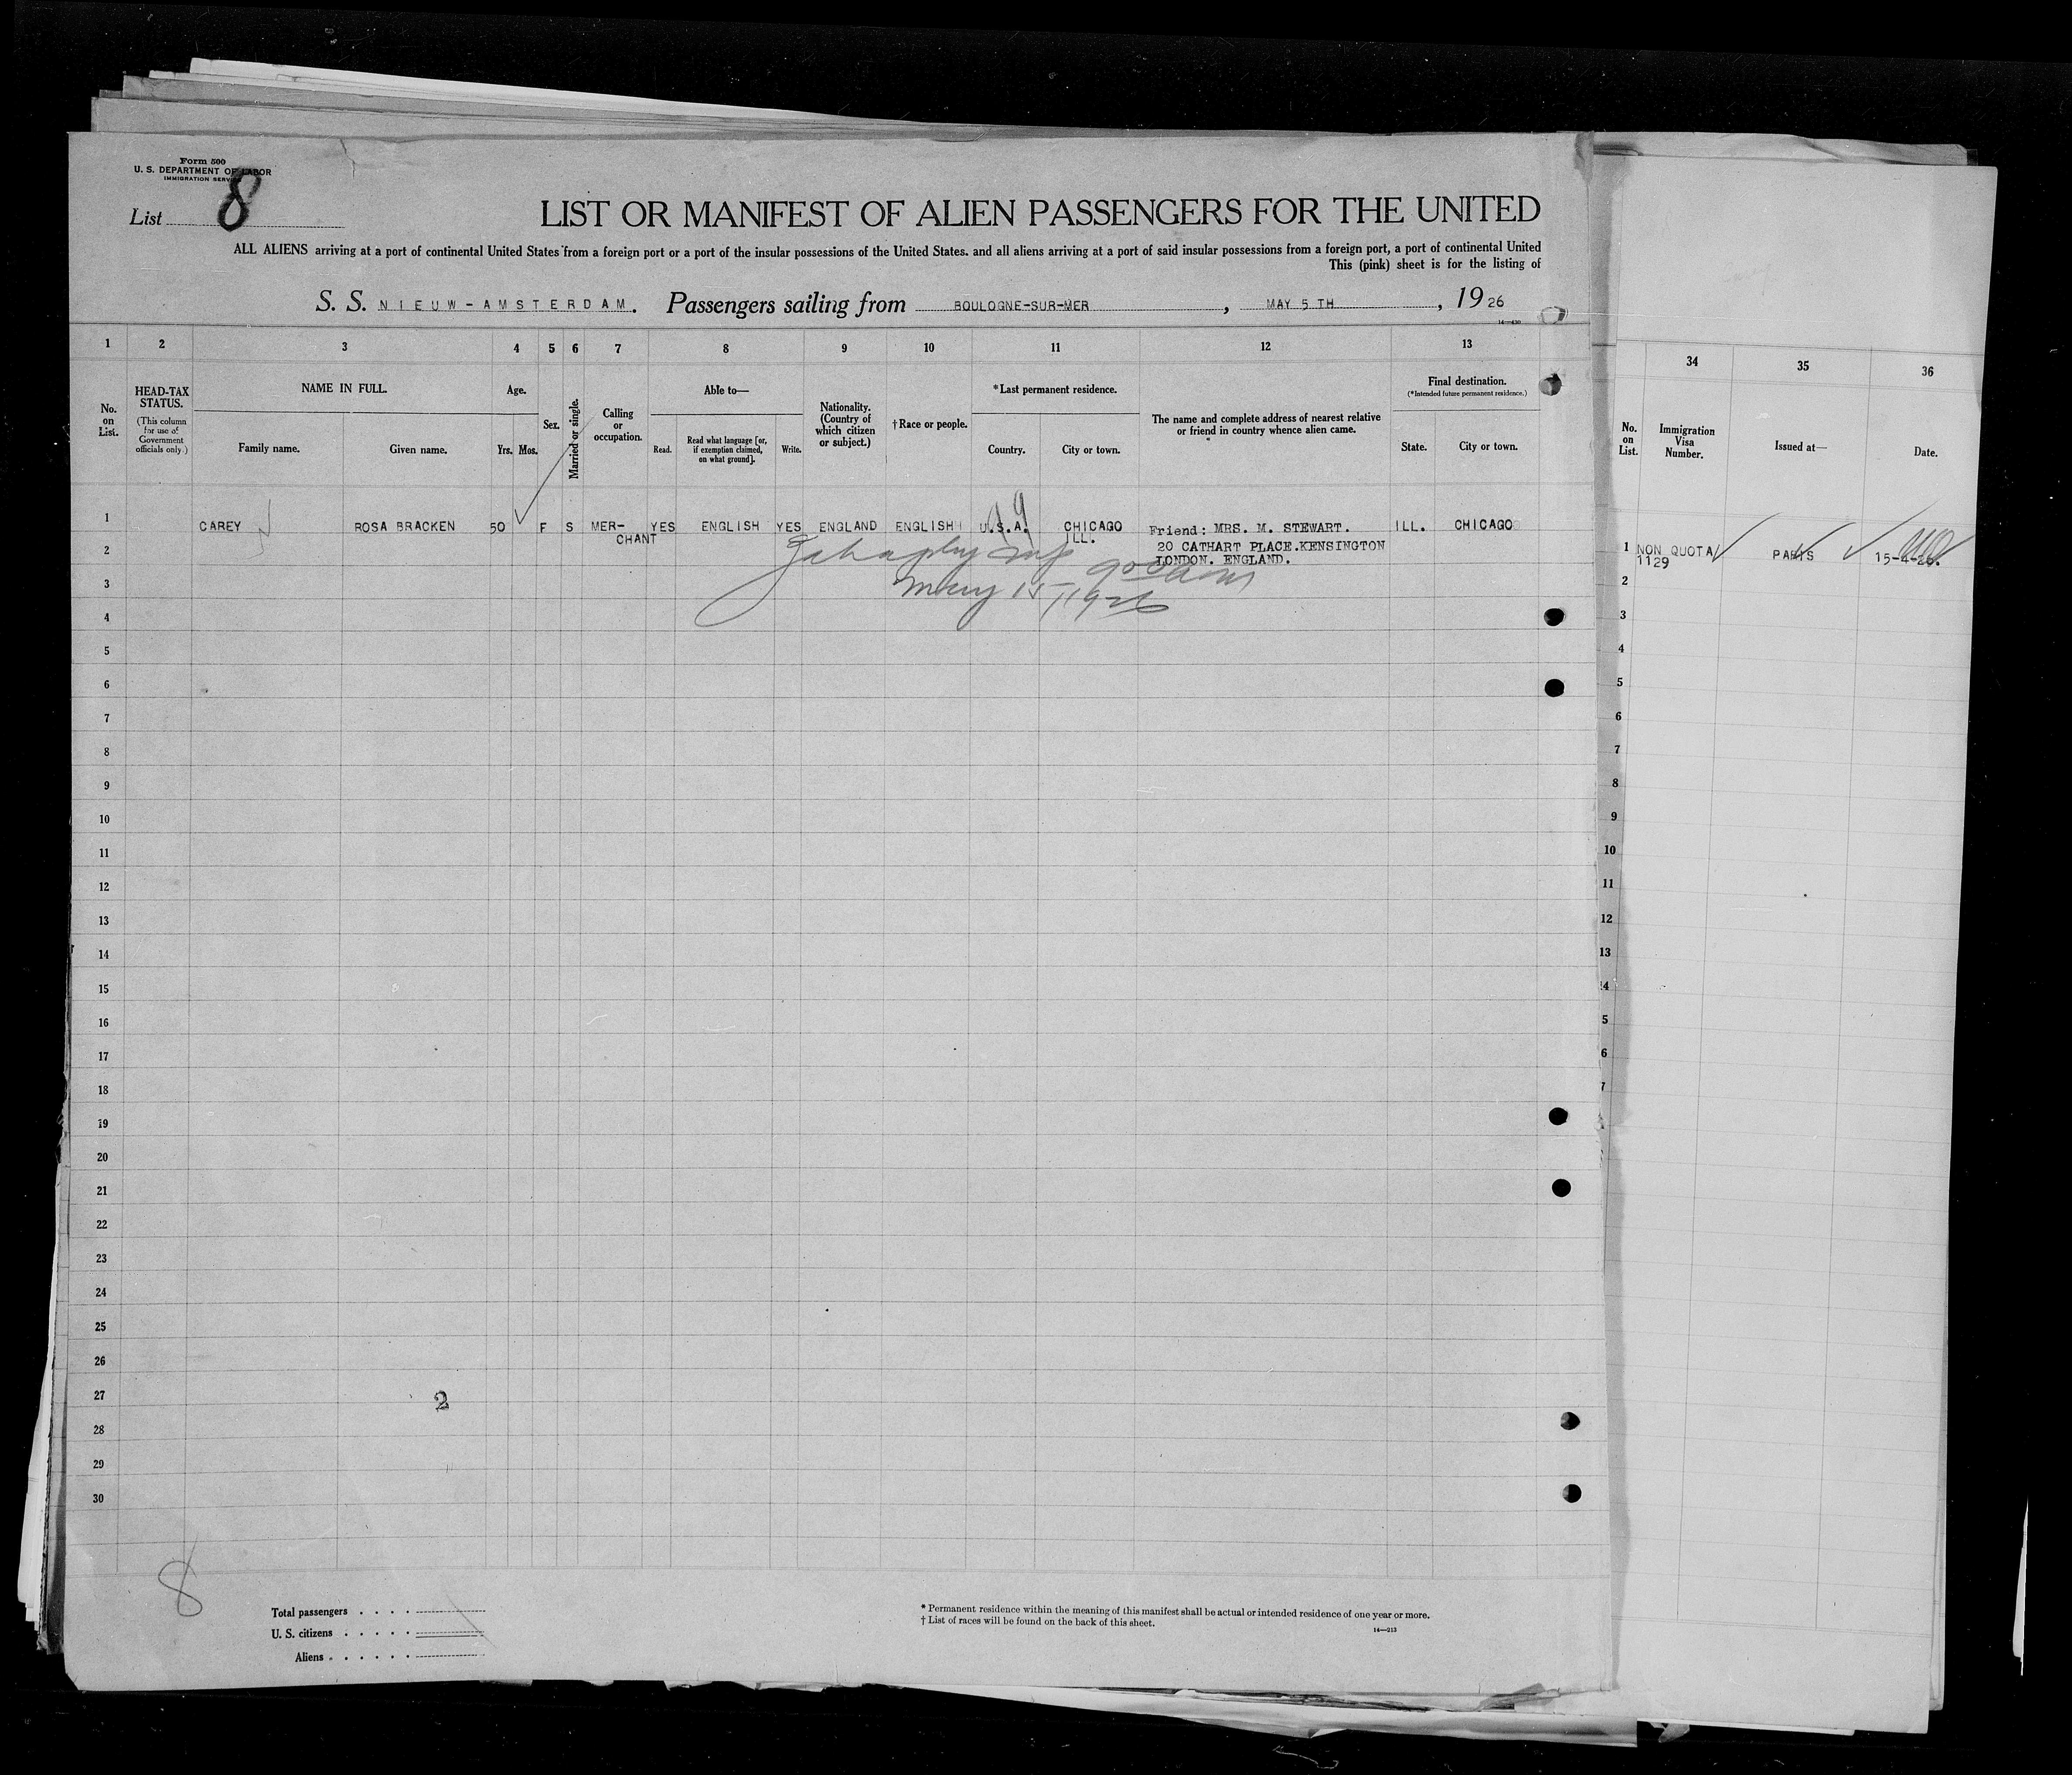 Form 500
U. S. DEPARTMENT OF LABOR
IMMIGRATION SERVICE
List 8
LIST OR MANIFEST OF ALIEN PASSENGERS FOR THE UNITED
ALL ALIENS arriving at a port of continental United States from a foreign port or a port of the insular possessions of the United States. and all aliens arriving at a port of said insular possessions from a foreign port, a port of continental United
This (pink) sheet is for the listing of
S. S. NIEUW-AMSTERDAM. Passengers sailing from BOULOGNE-SUR-MER, MAY 5 TH, 1926
1 2 3 4 5 6 7 8 9 10 11 12 13
34 35 36
No. on List.
HEAD-TAX STATUS.
(This column for use of Government officials only.)
NAME IN FULL.
Family name. Given name.
Age.
Yrs. Mos.
Sex.
Married or single.
Calling or occupation.
Able to—
Read. Read what language [or, if exemption claimed, on what ground]. Write.
Nationality. (Country of which citizen or subject.)
†Race or people.
*Last permanent residence.
Country. City or town.
The name and complete address of nearest relative or friend in country whence alien came.
Final destination.
(*Intended future permanent residence.)
State. City or town.
No. on List.
Immigration Visa Number.
Issued at—
Date.
1 CAREY ROSA BRACKEN 50 F S MER-CHANT YES ENGLISH YES ENGLAND ENGLISH U.S.A. CHICAGO ILL. Friend: MRS. M. STEWART. ILL. CHICAGO
20 CATHART PLACE.KENSINGTON
LONDON. ENGLAND.
1 NON QUOTA PARIS 15-4-26.
1129
May 15 1926
2
3
4
5
6
7
8
9
10
11
12
13
14
15
16
17
18
19
20
21
22
23
24
25
26
27
2
28
29
30
2
3
4
5
6
7
8
9
10
11
12
13
14
5
6
7
8
Total passengers
U. S. citizens
Aliens
* Permanent residence within the meaning of this manifest shall be actual or intended residence of one year or more.
† List of races will be found on the back of this sheet.
14—213